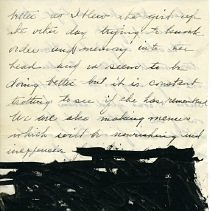 better as I blew the girl up
the other day trying to knock
order and memory into her
head and we seem to be
doing better but it is constant
testing to see if she has remembered
We are also making menus
which will be nourishing and
inexpensive